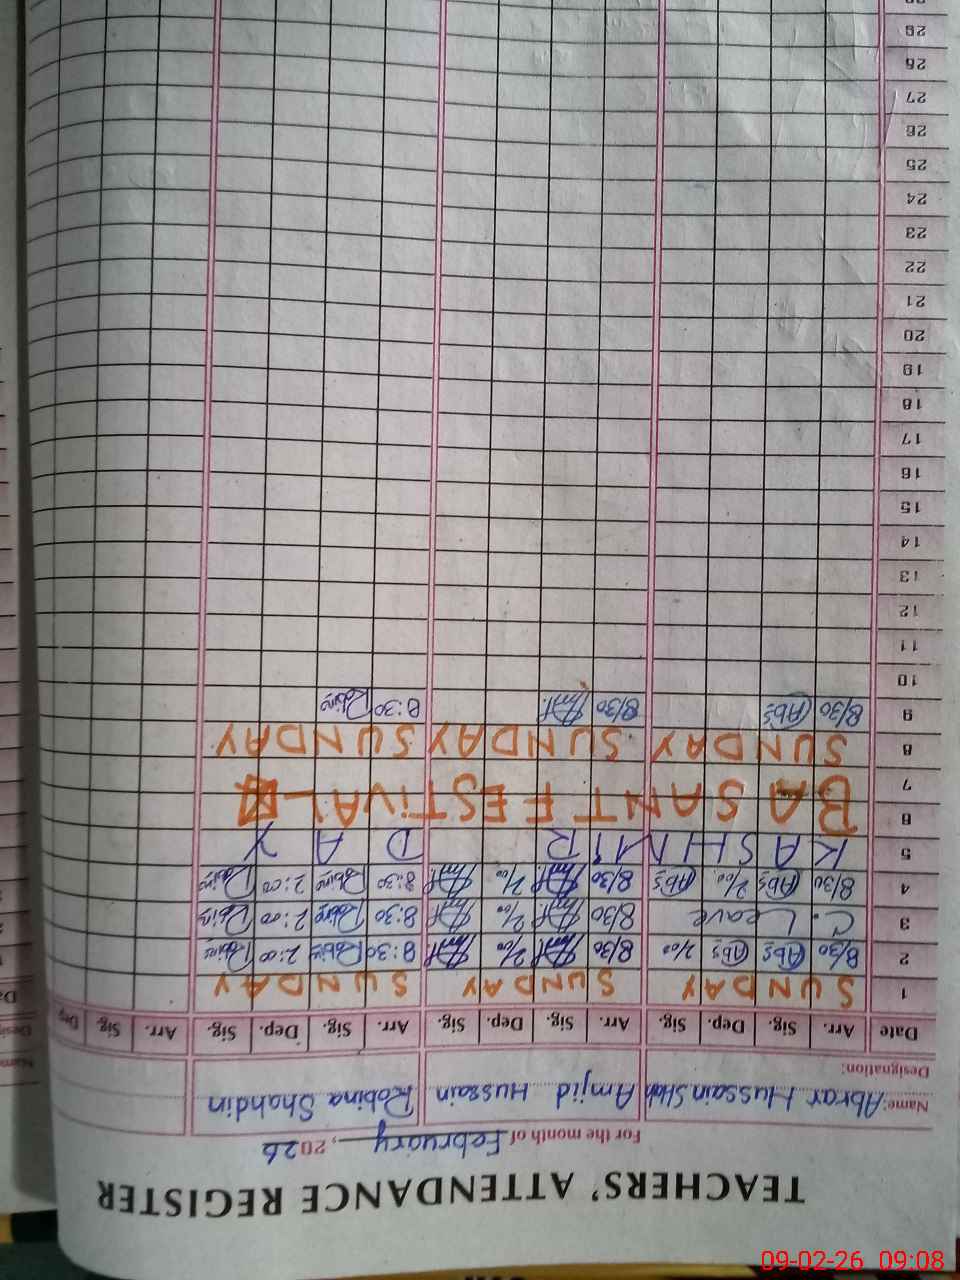 TEACHERS' ATTENDANCE REGISTER
For the month of February, 2026
Name: Abrar Hussain Shah Amjid Hussain Robina Shahdin
Designation:
Date Arr. Sig. Dep. Sig. Arr. Sig. Dep. Sig. Arr. Sig. Dep. Sig. Arr. Sig. Dep.
1 SUNDAY SUNDAY SUNDAY
2 8/30 Abs Abs 2/00 8/30 2/00 8:30 Robina 2:00 Robina
3 C. Leave 8/30 2/00 8:30 Robina 2:00 Robina
4 8/30 Abs 2/00 Abs 8/30 2/00 8:30 Robina 2:00 Robina
5 KASHMIR DAY
6
7 BASANT FESTIVAL
8 SUNDAY SUNDAY SUNDAY
9 8/30 Abs 8/30 8:30 Robina
10
11
12
13
14
15
16
17
18
19
20
21
22
23
24
25
26
27
09-02-26 09:08